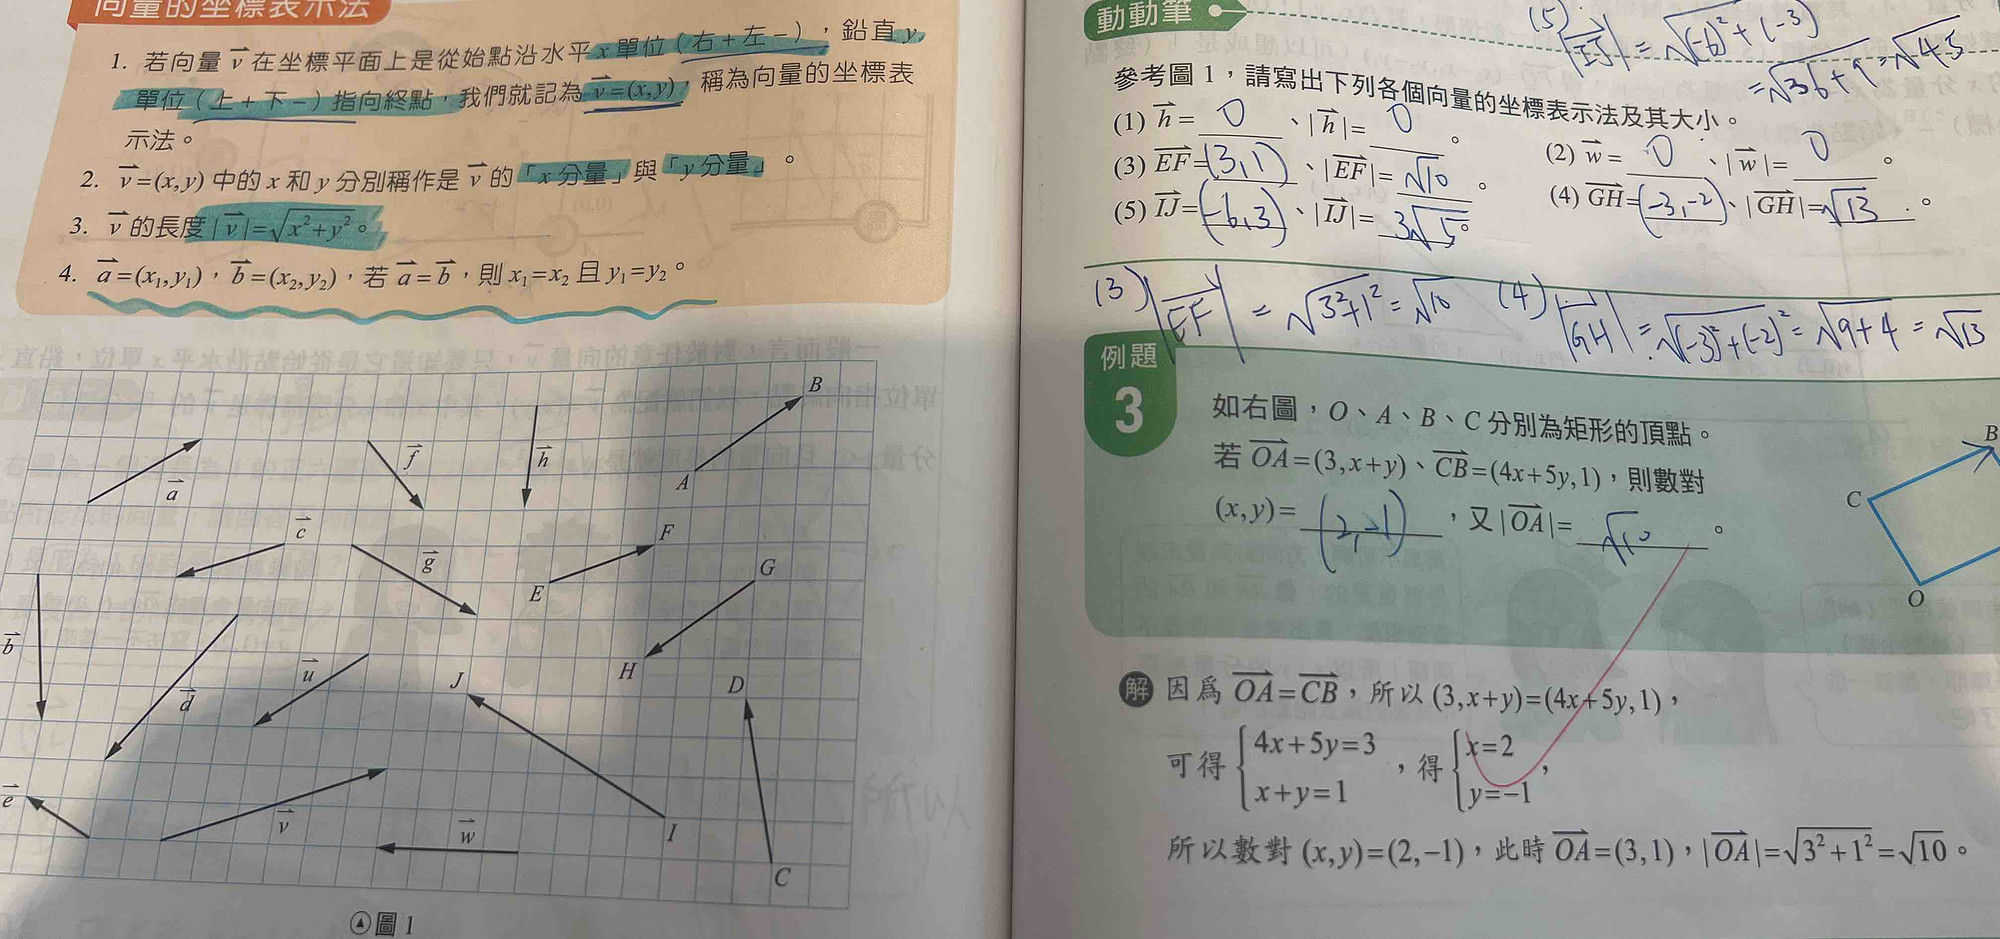 向量的坐標表示法
1. 若向量 v 在坐標平面上是從始點沿水平 x 單位(右+左-),鉛直 y
單位(上+下-)指向終點,我們就記為 v=(x,y),稱為向量的坐標表
示法。
2. v=(x,y) 中的 x 和 y 分別稱作是 v 的「x 分量」與「y 分量」。
3. v 的長度 |v|=√(x²+y²)。
4. a=(x₁,y₁),b=(x₂,y₂),若 a=b,則 x₁=x₂ 且 y₁=y₂。
B
a
f
h
A
c
g
F
E
G
b
d
u
J
H
D
e
v
w
I
C
圖 1
動動筆
(5) |IJ| = √(-6)²+(-3)
=√36+9=√45
參考圖 1,請寫出下列各個向量的坐標表示法及其大小。
(1) h= 0 、|h|= 0 。
(2) w= 0 、|w|= 0 。
(3) EF=(3,1)、|EF|=√10。
(4) GH=(-3,-2)、|GH|=√13。
(5) IJ=(-6,3)、|IJ|=3√5。
(3) |EF| = √3²+1² = √10
(4) |GH| = √(-3)²+(-2)² = √9+4 = √13
例題
3
如右圖,O、A、B、C 分別為矩形的頂點。
若 OA=(3,x+y)、CB=(4x+5y,1),則數對
(x,y)= (2,-1) ,又 |OA|= √10 。
B
C
O
解 因為 OA=CB,所以 (3,x+y)=(4x+5y,1),
可得 {4x+5y=3
x+y=1 ,得 {x=2
y=-1 ,
所以數對 (x,y)=(2,-1),此時 OA=(3,1),|OA|=√(3²+1²)=√10。